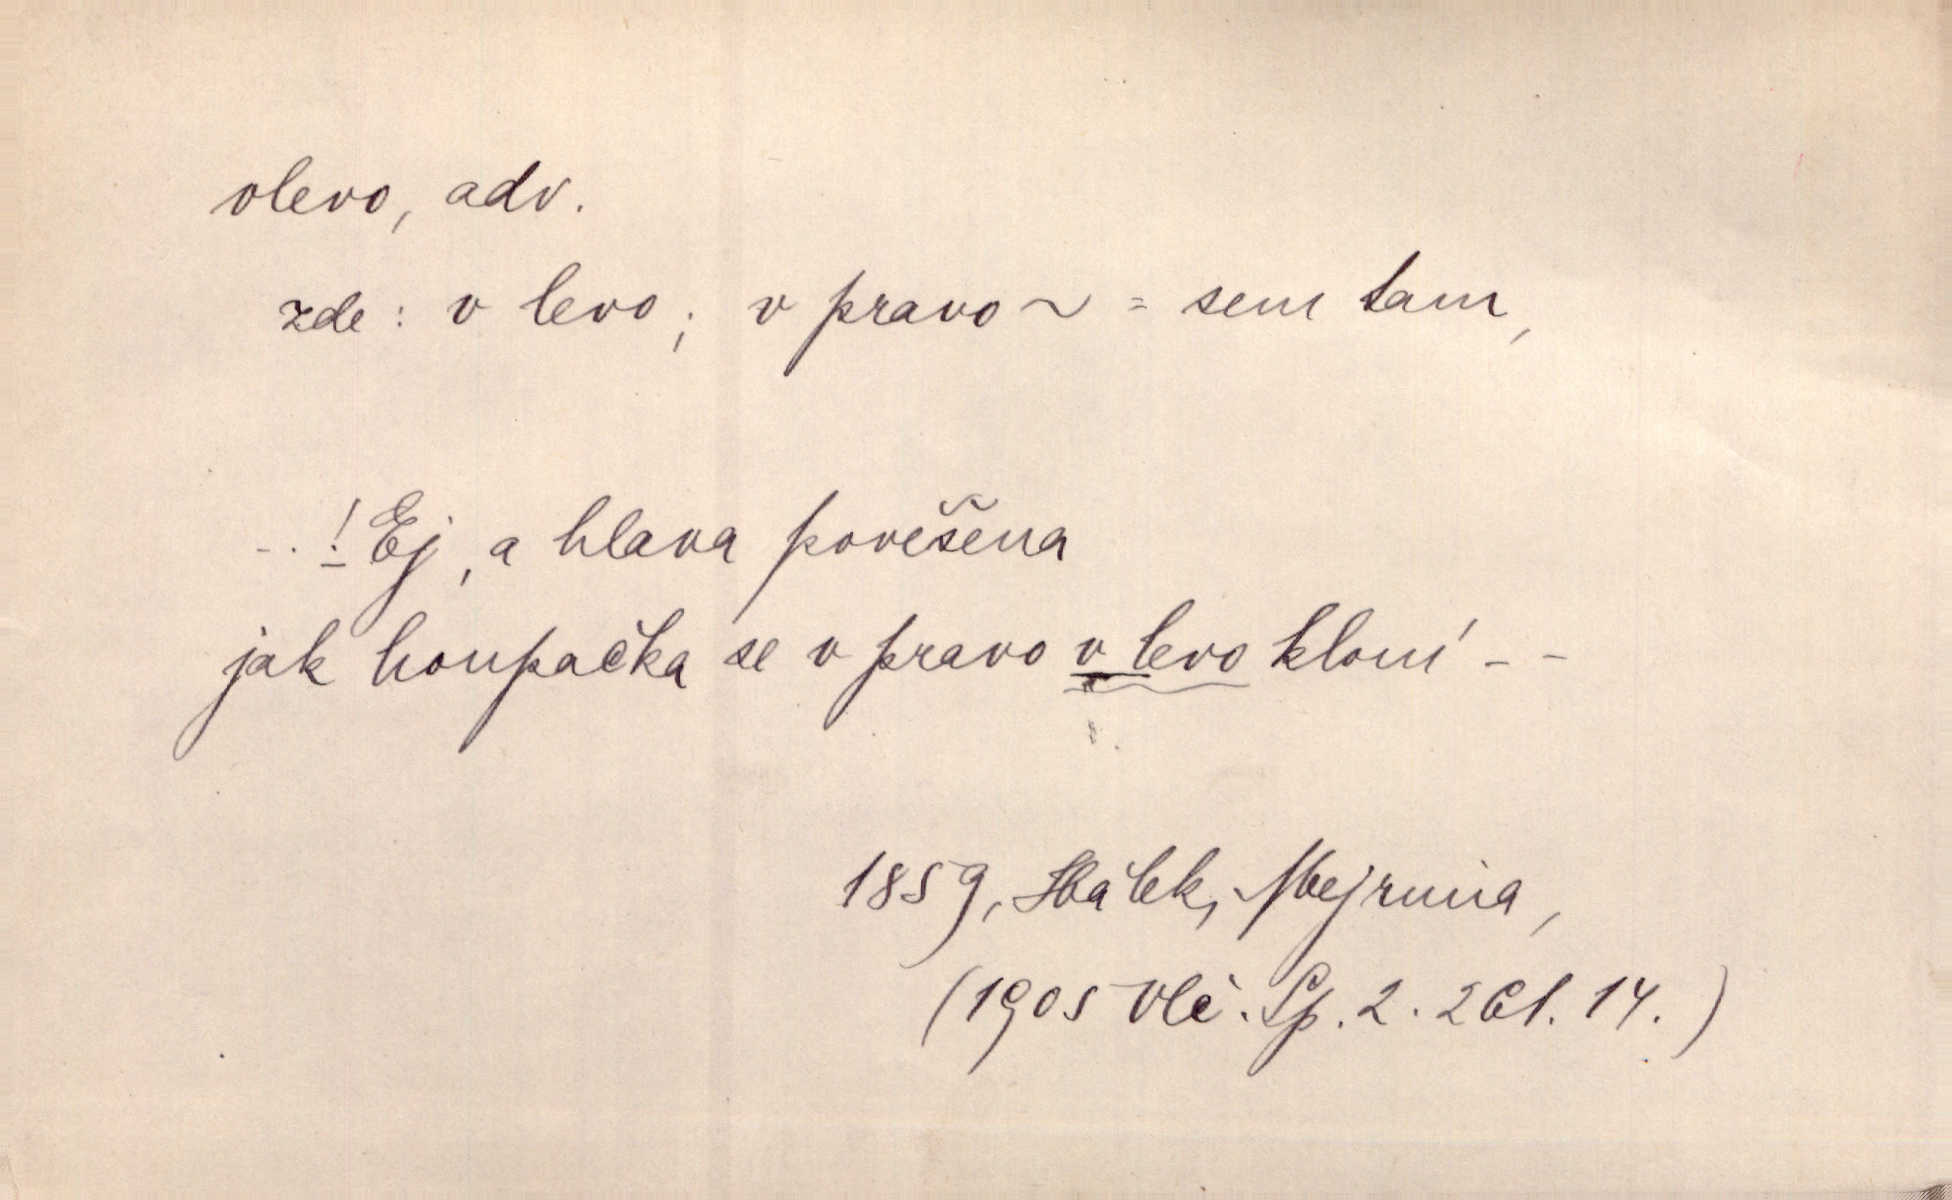 vlevo, adv.
zde : v levo ; v pravo ~ = sem tam,
- . . ! Ej, a hlava pověšena
jak houpačka se v pravo v levo kloní - -
1859, Hálek, Mejrima,
(1905 Vlč. Sp. 2. 14.)